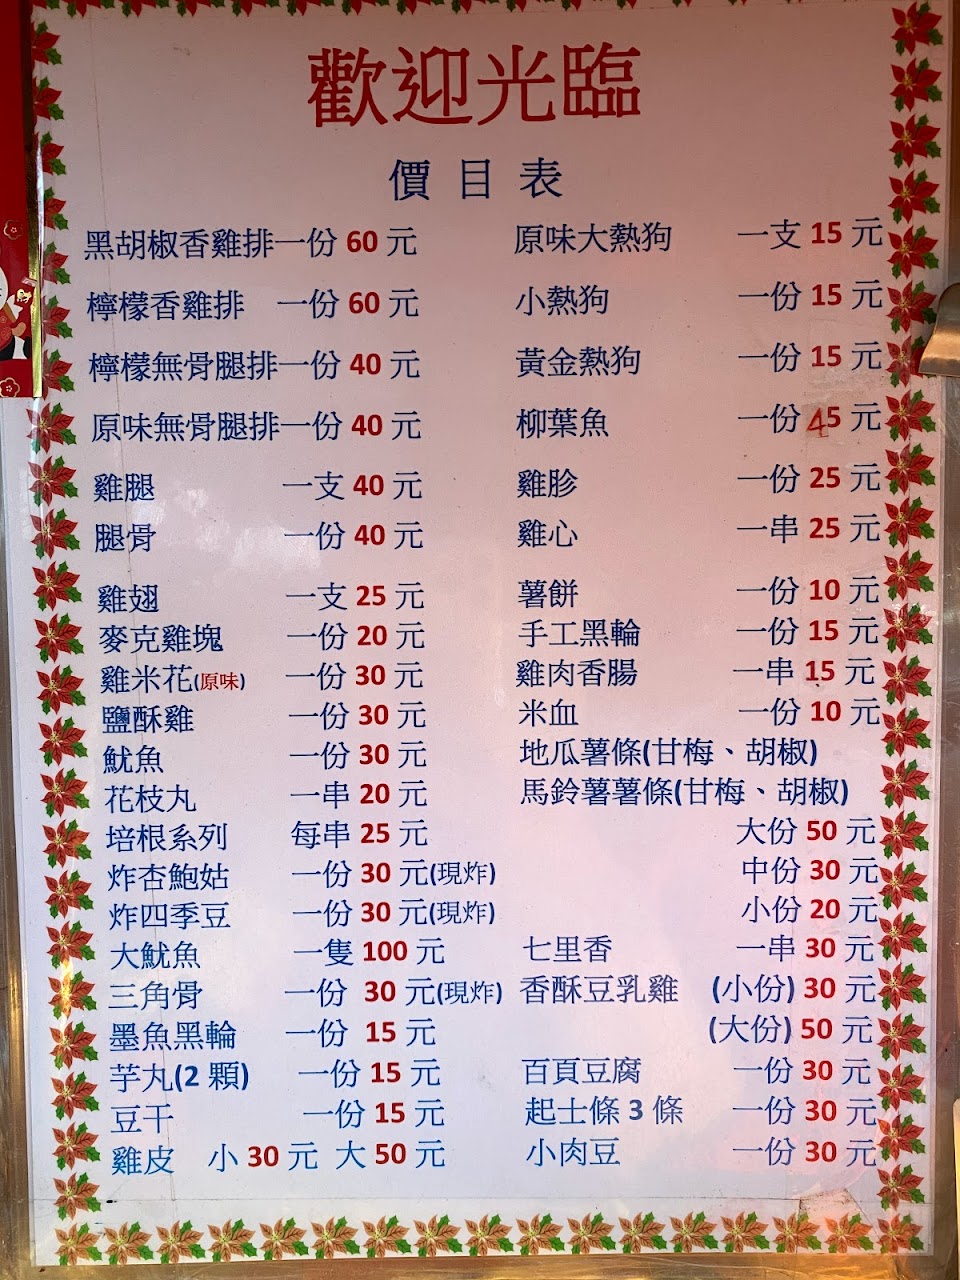 歡迎光臨
價目表
黑胡椒香雞排一份 60 元
檸檬香雞排 一份 60 元
檸檬無骨腿排一份 40 元
原味無骨腿排一份 40 元
雞腿 一支 40 元
腿骨 一份 40 元
雞翅 一支 25 元
麥克雞塊 一份 20 元
雞米花(原味) 一份 30 元
鹽酥雞 一份 30 元
魷魚 一份 30 元
花枝丸 一串 20 元
培根系列 每串 25 元
炸杏鮑菇 一份 30 元(現炸)
炸四季豆 一份 30 元(現炸)
大魷魚 一隻 100 元
三角骨 一份 30 元(現炸)
墨魚黑輪 一份 15 元
芋丸(2 顆) 一份 15 元
豆干 一份 15 元
雞皮 小 30 元 大 50 元
原味大熱狗 一支 15 元
小熱狗 一份 15 元
黃金熱狗 一份 15 元
柳葉魚 一份 45 元
雞胗 一份 25 元
雞心 一串 25 元
薯餅 一份 10 元
手工黑輪 一份 15 元
雞肉香腸 一串 15 元
米血 一份 10 元
地瓜薯條(甘梅、胡椒)
馬鈴薯薯條(甘梅、胡椒)
大份 50 元
中份 30 元
小份 20 元
七里香 一串 30 元
香酥豆乳雞 (小份) 30 元
(大份) 50 元
百頁豆腐 一份 30 元
起士條 3 條 一份 30 元
小肉豆 一份 30 元